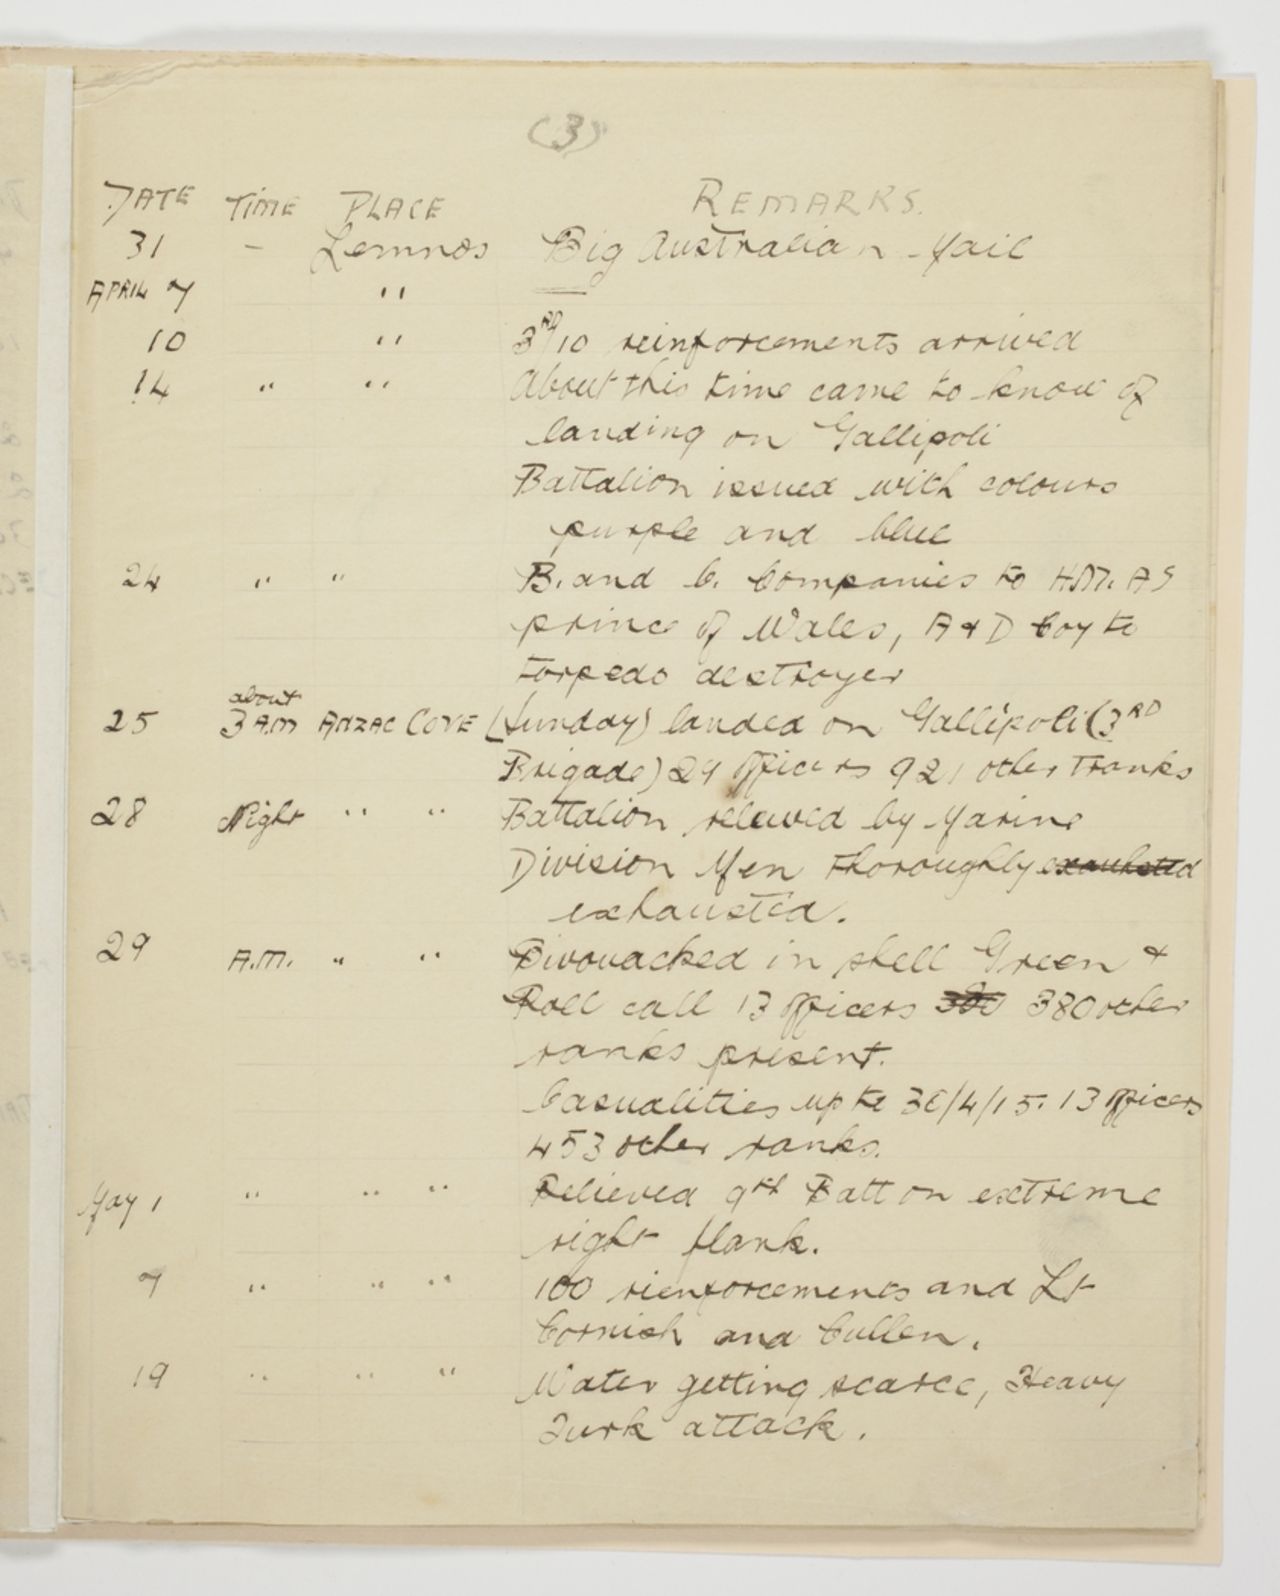 (3)
DATE TIME PLACE REMARKS.
31 - Lemnos Big Australian Mail
APRIL 7 " 
10 " 3RD/10 reinforcements arrived
14 " " About this time came to know of
landing on Gallipoli
Battalion issued with colours
purple and blue
24 " " B. and C. Companies to H.M.A.S
prince of Wales, A & D Coy to
torpedo destroyer
about
25 3 AM ANZAC COVE (Sunday) landed on Gallipoli (3RD
Brigade) 29 officers 921 other ranks
28 Night " " Battalion releived by Marine
Division Men thoroughly
exhausted.
29 A.M. " " Bivouacked in shell Green &
Roll call 13 officers 380 other
ranks present.
Casualities up to 30/4/15. 13 officers
453 other ranks.
May 1 " " " Relieved 9th Batt on extreme
right flank.
7 " " " 100 rienforcements and Lt
Cornish and Cullen.
19 " " " Water getting scarce, Heavy
Turk attack.